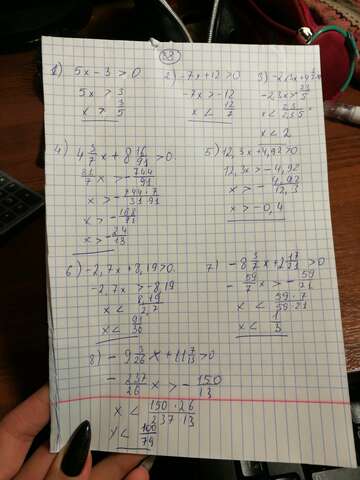 53
1) 5x - 3 > 0
5x > 3
x > 3/5
2) -7x + 12 > 0
-7x > -12
x < 12/7
3)
x < 2
4) 4 3/7 x + 8 16/91 > 0
31/7 x > - 744/91
x > - 744·7/31·91
x > - 24/13
5) 12,3x + 4,92 > 0
12,3x > -4,92
x > - 4,92/12,3
x > -0,4
6) -2,7x + 8,19 > 0
-2,7x > -8,19
x < 8,19/2,7
x < 91/30
7) -8 3/7 x + 2 17/21 > 0
- 59/7 x > - 59/21
x < 59·7/59·21
x < 1/3
8) -9 3/26 x + 11 7/13 > 0
- 237/26 x > - 150/13
x < 150·26/237·13
x < 100/79